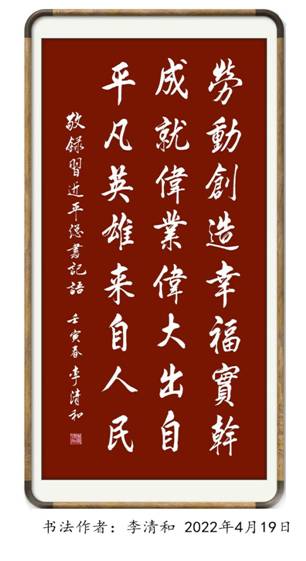 勞動創造幸福實幹
成就偉業偉大出自
平凡英雄来自人民
敬錄習近平总書記語 壬寅春 李清和
书法作者：李清和 2022年4月19日